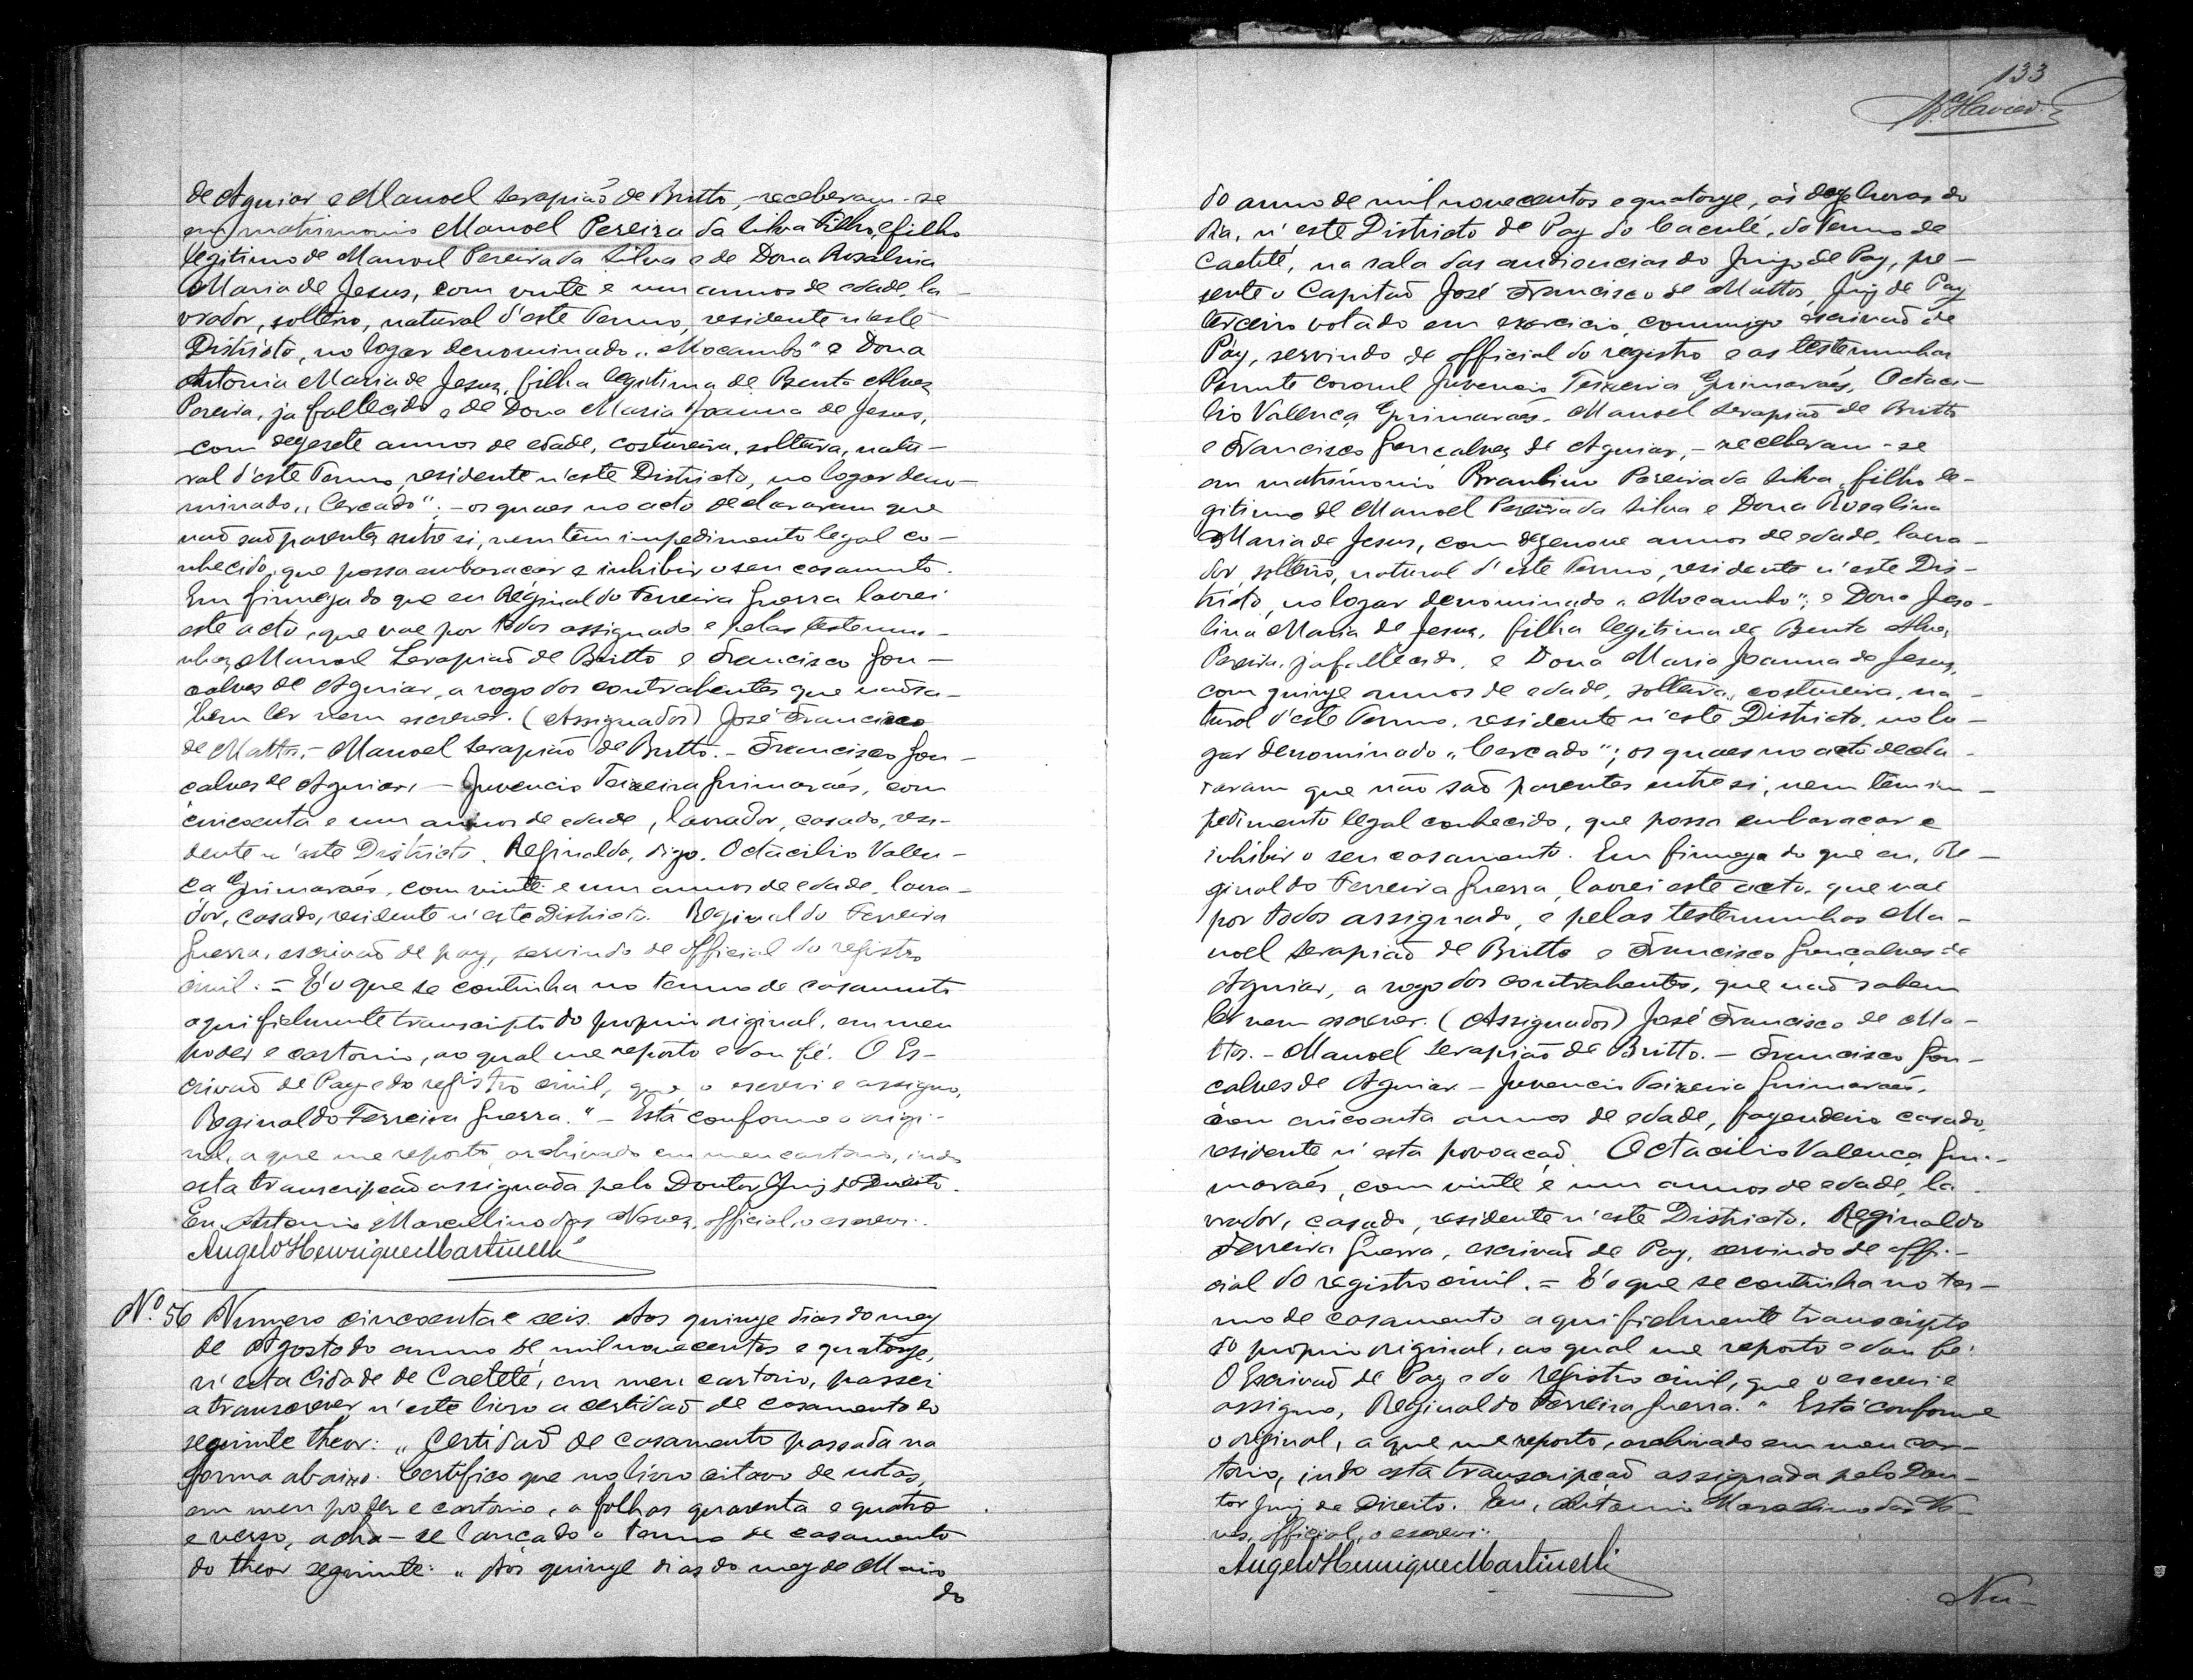 de Aguiar e Manoel Serapião de Britto, - receberam-se
em matrimonio Manoel Pereira da Silva Filho, filho
legitimo de Manoel Pereira da Silva e de Dona Rosalina
Maria de Jesus, com vinte e um annos de edade, la-
vrador, solteiro, natural d'este Termo, residente n'este
Districto, no logar denominado "Mocambo" e Dona
Antonia Maria de Jesus, filha legitima de Bento Alves
Pereira, ja fallecido e de Dona Maria Joanna de Jesus,
com dezesete annos de edade, costureira, solteira, natu-
ral d'este Termo, residente n'este Districto, no logar deno-
minado "Cercado"; - os quaes no acto declararam que
não são parentes entre si, nem têm impedimento legal co-
nhecido, que possa embaraçar e inhibir o seu casamento.
Em firmeza do que eu Reginaldo Ferreira Guerra lavrei
este acto, que vae por todos assignado e pelas testemu-
nhas Manoel Serapião de Britto e Francisco Gon-
çalves de Aguiar, a rogo dos contrahentes que não sa-
bem ler nem escrever. (Assignados) José Francisco
de Mattos, - Manoel Serapião de Britto. - Francisco Gon-
çalves de Aguiar, - Juvencio Teixeira Guimarães, com
cincoenta e um annos de edade, lavrador, casado, resi-
dente n'este Districto. Reginaldo, digo, Octacilio Valen-
ça Guimarães, com vinte e um annos de edade, lavra-
dor, casado, residente n'este Districto. Reginaldo Ferreira
Guerra, escrivão de paz, servindo de official do registro
civil. = É o que se continha no termo de casamento
aqui fielmente transcripto do proprio original, em meu
poder e cartorio, ao qual me reporto e dou fé. O Es-
crivão de Paz e do registro civil, que o escrevi e assigno,
Reginaldo Ferreira Guerra." - Está conforme o origi-
nal, a que me reporto, archivado em meu cartorio, indo
esta transcripção assignada pelo Doutor Juiz de Direito.
Eu, Antonio Marcellino das Neves, official, o escrevi.
Angelo Henrique Martinelli
Nº. 56 Numero cincoenta e seis. Aos quinze dias do mez
de Agosto do anno de mil novecentos e quatorze,
n'esta Cidade de Caeteté, em meu cartorio, passei
a transcrever n'este livro a certidão de casamento do
seguinte theor: "Certidão de casamento passada na
forma abaixo. Certifico que no livro oitavo de notas,
em meu poder e cartorio, a folhas quarenta e quatro
e verso, acha-se lançado o termo de casamento
do theor seguinte: "Aos quinze dias do mez de Maio
do
133
do anno de mil novecentos e quatorze, ás doze horas do
dia, n'este Districto de Paz do Caculé, do Termo de
Caeteté, na sala das audiencias do Juizo de Paz, pre-
sente o Capitão José Francisco de Mattos, Juiz de Paz
terceiro votado em exercicio, commigo escrivão de
Paz, servindo de official do registro e as testemunhas
Coronel Juvencio Teixeira Guimarães, Octaci-
lio Valença Guimarães, Manoel Serapião de Britto
e Francisco Gonçalves de Aguiar, - receberam-se
em matrimonio Braulino Pereira da Silva, filho le-
gitimo de Manoel Pereira da Silva e Dona Rosalina
Maria de Jesus, com dezenove annos de edade, lavra-
dor, solteiro, natural d'este Termo, residente n'este Dis-
tricto, no logar denominado "Mocambo"; e Dona Jeso-
lina Maria de Jesus, filha legitima de Bento Alves
Pereira, ja fallecido, e Dona Maria Joanna de Jesus,
com quinze annos de edade, solteira, costureira, na-
tural d'este Termo, residente n'este Districto, no lo-
gar denominado "Cercado"; os quaes no acto decla-
raram que não são parentes entre si, nem têm im-
pedimento legal conhecido, que possa embaraçar e
inhibir o seu casamento. Em firmeza do que eu, Re-
ginaldo Ferreira Guerra, lavrei este acto, que vae
por todos assignado, e pelas testemunhas Ma-
noel Serapião de Britto e Francisco Gonçalves de
Aguiar, a rogo dos contrahentes, que não sabem
ler nem escrever. (Assignados) José Francisco de Ma-
ttos. - Manoel Serapião de Britto. - Francisco Gon-
çalves de Aguiar - Juvencio Teixeira Guimarães,
com cincoenta annos de edade, fazendeiro casado,
residente n'esta povoação. Octacilio Valença Gui-
marães, com vinte e um annos de edade, la-
vrador, casado, residente n'este Districto. Reginaldo
Ferreira Guerra, escrivão de Paz, servindo de offi-
cial do registro civil. = É o que se continha no ter-
mo de casamento aqui fielmente transcripto
do proprio original, ao qual me reporto e dou fé.
O Escrivão de Paz e do registro civil, que o escrevi e
assigno, Reginaldo Ferreira Guerra." Está conforme
o original, a que me reporto, archivado em meu car-
torio, indo esta transcripção assignada pelo Dou-
tor Juiz de Direito. Eu, Antonio Marcellino das Ne-
ves, official, o escrevi.
Angelo Henrique Martinelli
Nu-